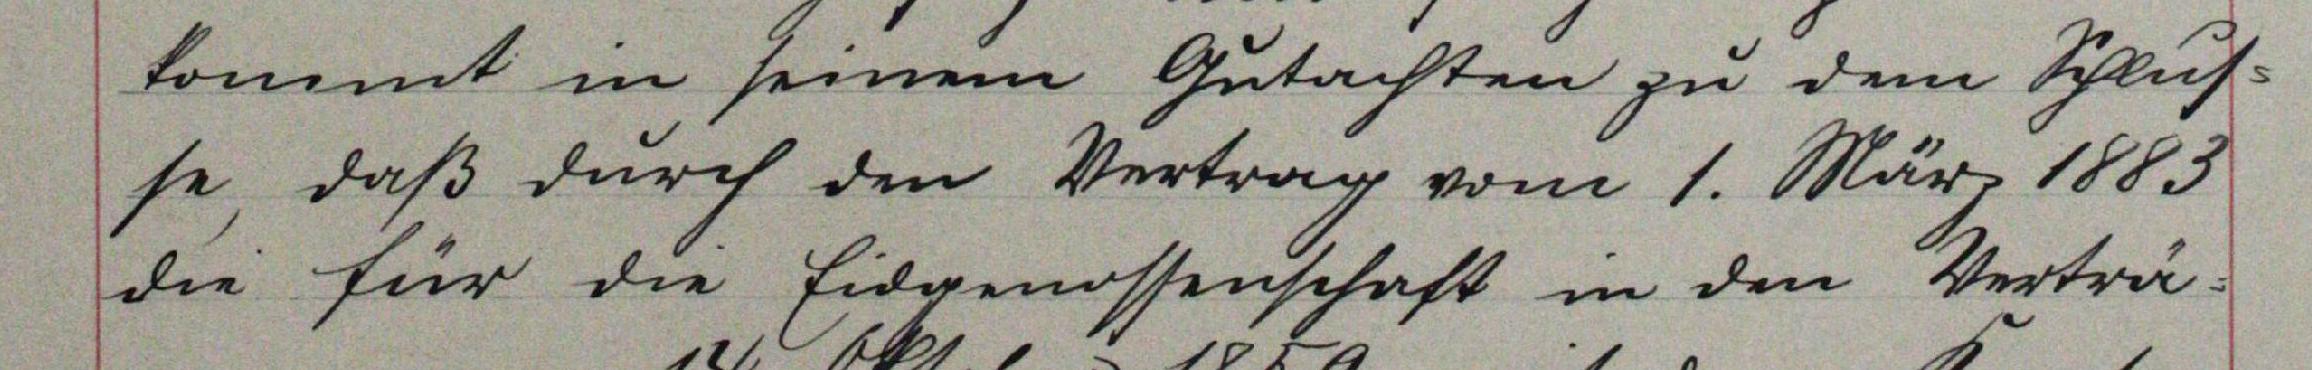 kommt in seinem Gutachten zu dem Schlus=
se, daß durch den Vertrag vom 1. März 1883
die für die Eidgenossenschaft in den Verträ=